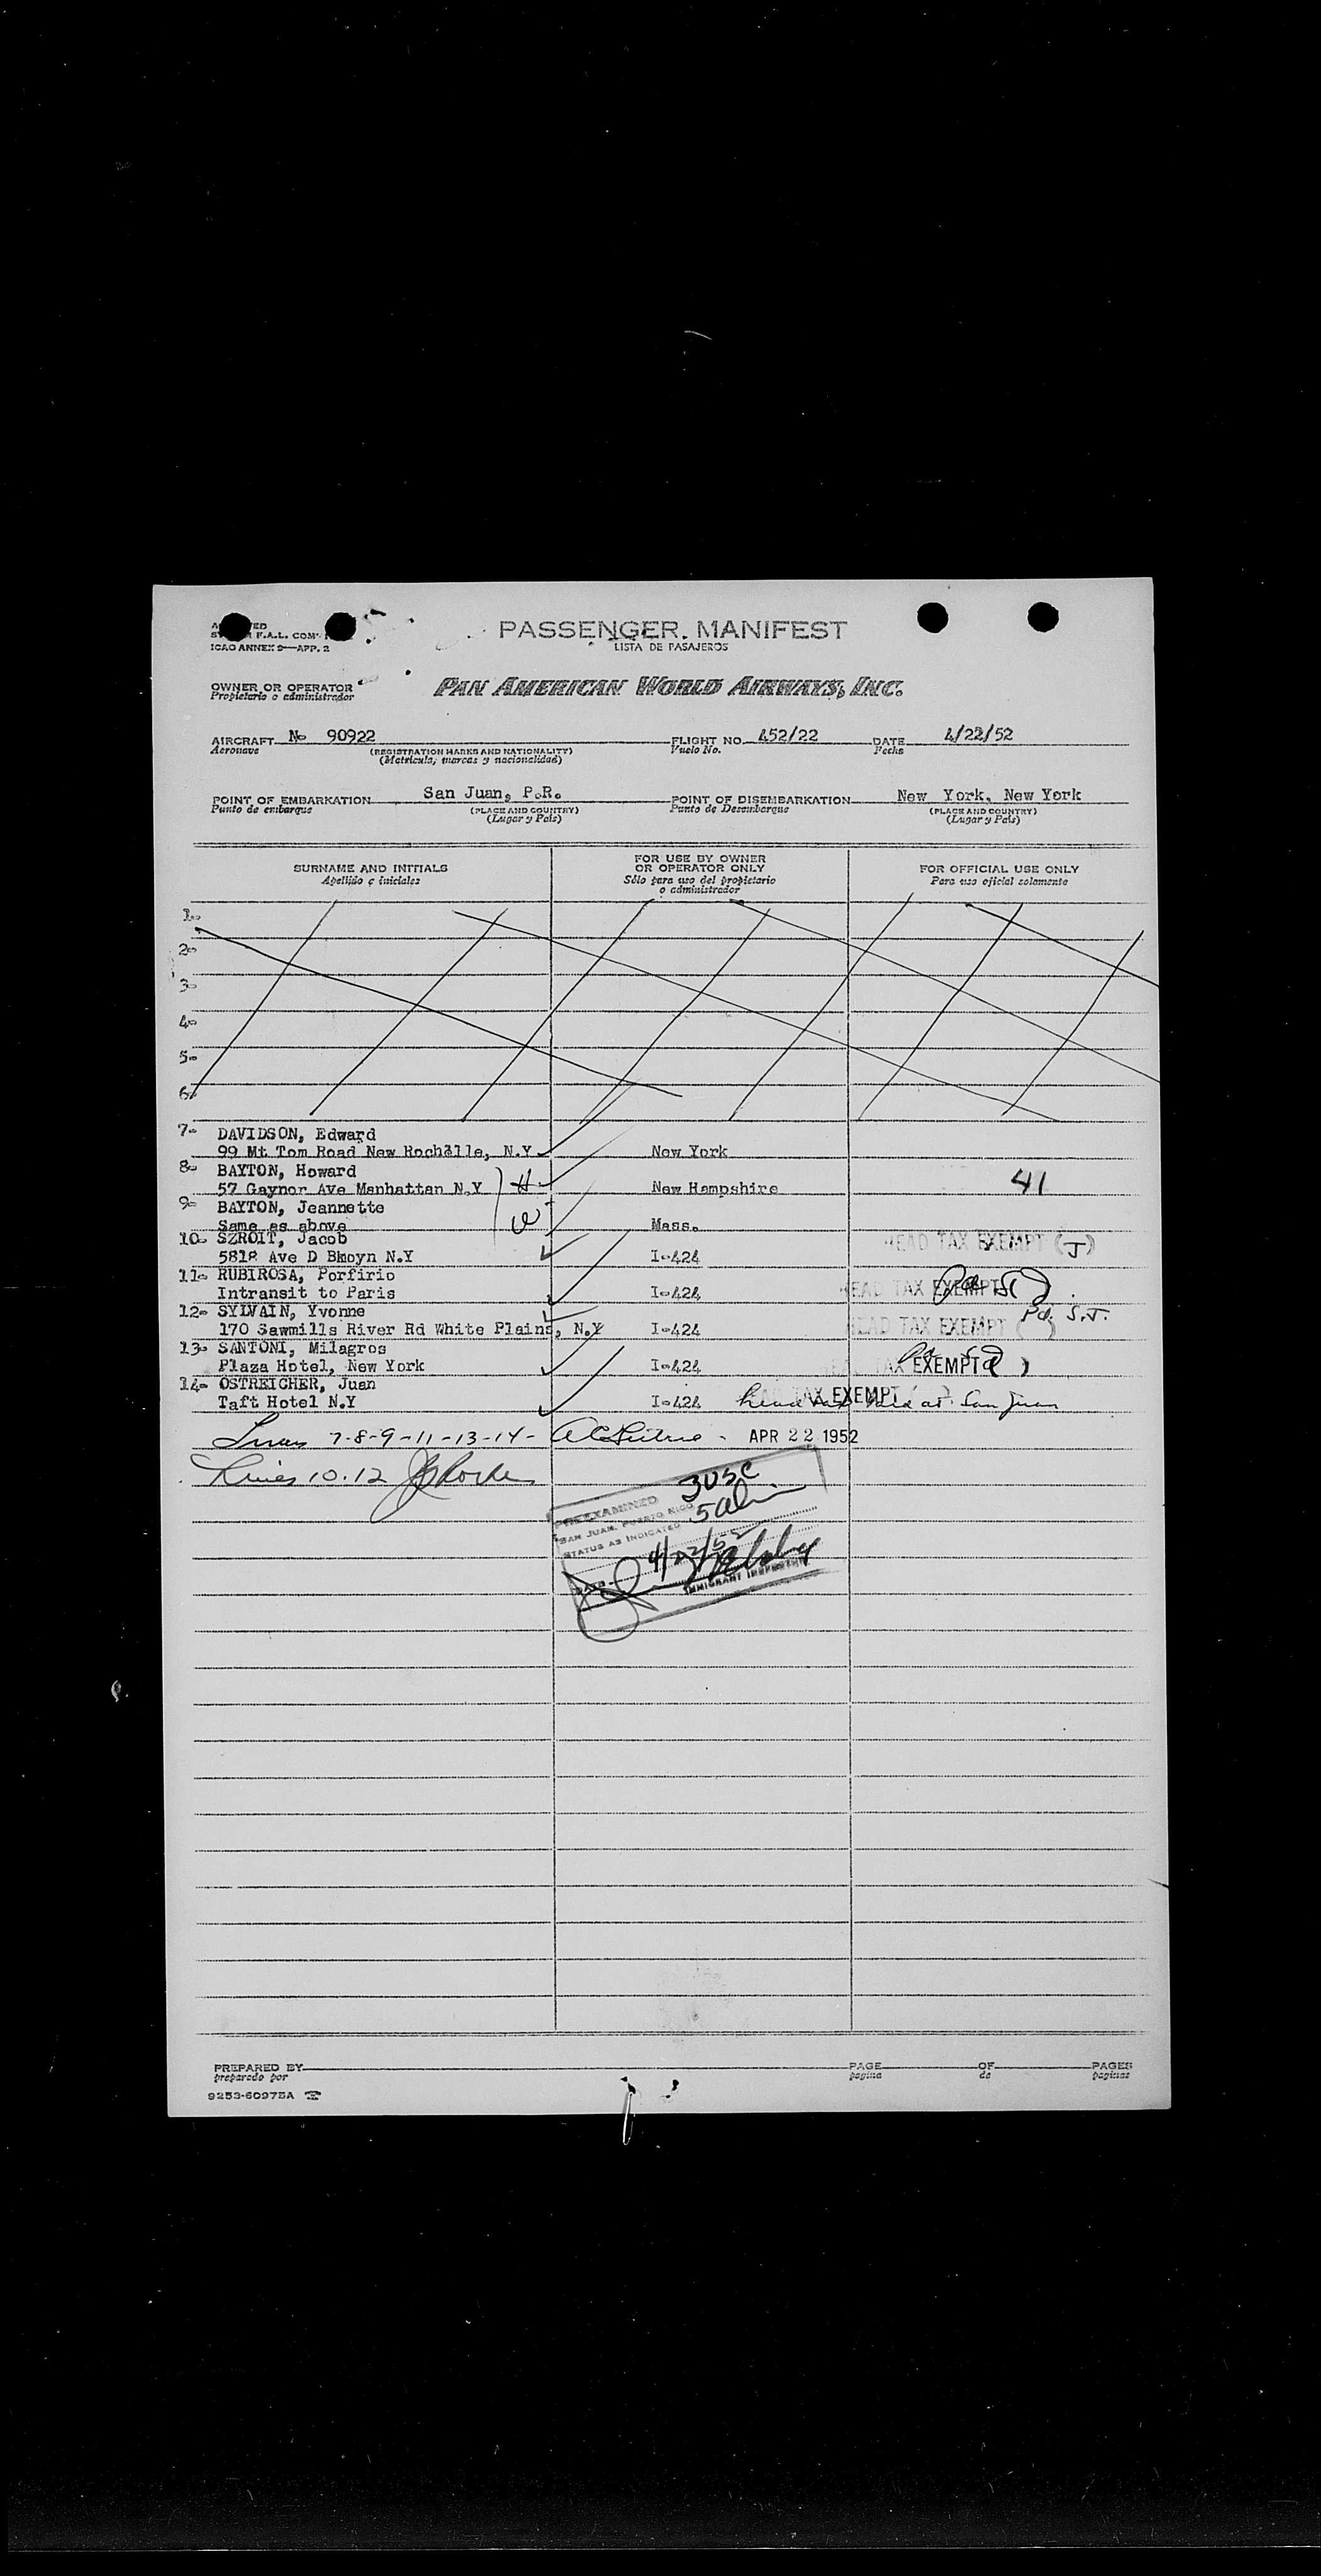 F.A.L. COM
ICAO ANNEX 9—APP. 2
PASSENGER MANIFEST
LISTA DE PASAJEROS
OWNER OR OPERATOR
Propietario o administrador
PAN AMERICAN WORLD AIRWAYS, INC.
AIRCRAFT No 90922 FLIGHT NO. 452/22 DATE 4/22/52
Aeronave (REGISTRATION MARKS AND NATIONALITY) Vuelo No. Fecha
(Matrícula, marcas y nacionalidad)
POINT OF EMBARKATION San Juan, P.R. POINT OF DISEMBARKATION New York, New York
Punto de embarque (PLACE AND COUNTRY) Punto de Desembarque (PLACE AND COUNTRY)
(Lugar y País) (Lugar y País)
SURNAME AND INITIALS FOR USE BY OWNER OR OPERATOR ONLY FOR OFFICIAL USE ONLY
Apellido e iniciales Sólo para uso del propietario o administrador Para uso oficial solamente
1-
2-
3-
4-
5-
6-
7- DAVIDSON, Edward
99 Mt Tom Road New Rochelle, N.Y New York
8- BAYTON, Howard
57 Gaynor Ave Manhattan N.Y H New Hampshire 41
9- BAYTON, Jeannette
Same as above W Mass.
10- SZROIT, Jacob
5818 Ave D Bkoyn N.Y I-424 HEAD TAX EXEMPT (J)
11- RUBIROSA, Porfirio
Intransit to Paris I-424 HEAD TAX EXEMPT
12- SYLVAIN, Yvonne Pd. S.J.
170 Sawmills River Rd White Plains, N.Y I-424 HEAD TAX EXEMPT ( )
13- SANTONI, Milagros
Plaza Hotel, New York I-424 TAX EXEMPT
14- OSTREICHER, Juan
Taft Hotel N.Y I-424 TAX EXEMPT head tax paid at San Juan
7-8-9-11-13-14- APR 22 1952
Lines 10.12
3 USC
PRE-EXAMINED
SAN JUAN, PUERTO RICO
STATUS AS INDICATED
4/22/52
IMMIGRANT INSPECTOR
PREPARED BY PAGE OF PAGES
preparado por página de páginas
9253-60975A